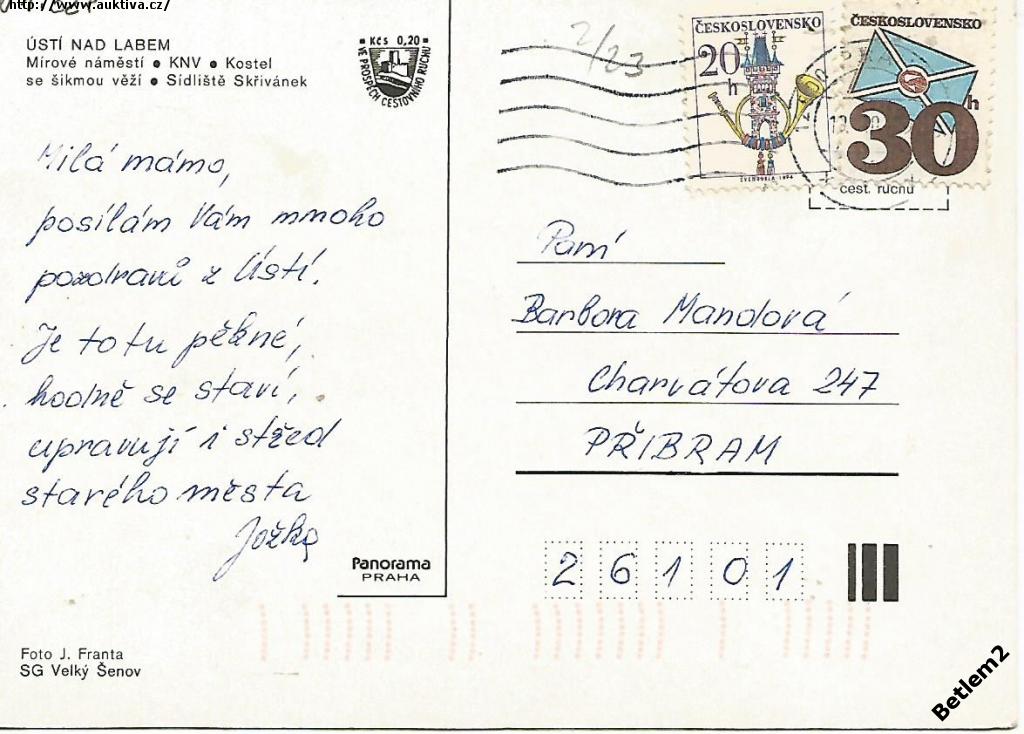 http://www.auktiva.cz/
ÚSTÍ NAD LABEM
Mírové náměstí ● KNV ● Kostel
se šikmou věží ● Sídliště Skřivánek
Kčs 0,20
VE PROSPĚCH CESTOVNÍHO RUCHU
2/23
ČESKOSLOVENSKO
20 h
ČESKOSLOVENSKO
30 h
cest. ruchu
Milá mámo,
posílám Vám mnoho
pozdravů z Ústí.
Je to tu pěkné,
hodně se staví,
upravují i střed
starého města
Jožka
Paní
Barbora Mandlová
Charvátova 247
PŘÍBRAM
26101
Panorama
PRAHA
Foto J. Franta
SG Velký Šenov
Betlem2